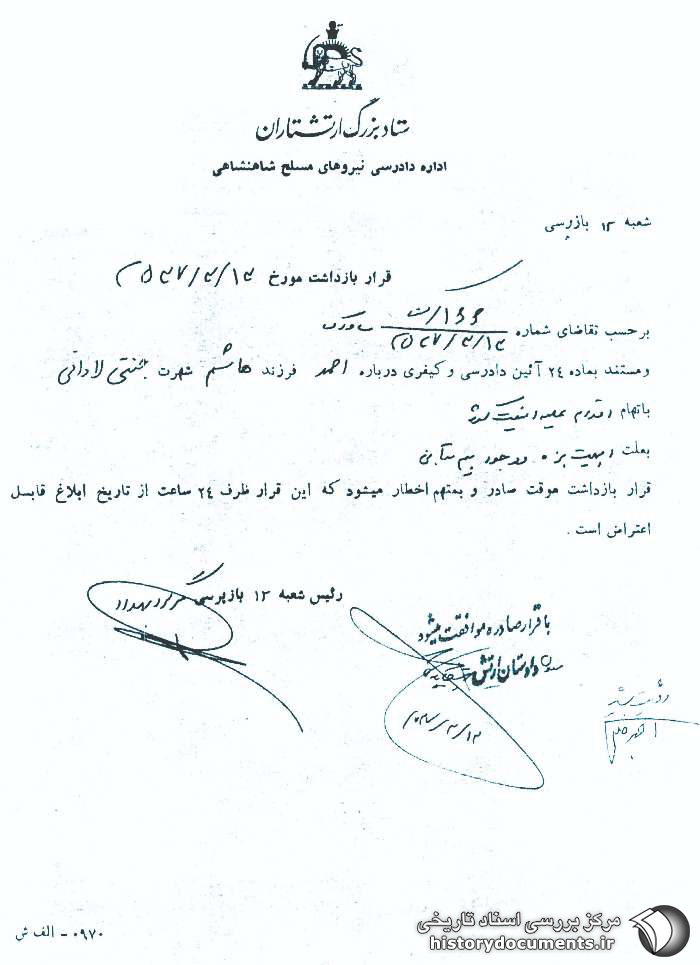 ستاد بزرگ ارتشتاران
اداره دادرسی نیروهای مسلح شاهنشاهی
شعبه ۱۳ بازپرسی
قرار بازداشت مورخ
برحسب تقاضای شماره ساواک
ومستند بماده ۲۴ آئین دادرسی و کیفری درباره احمد فرزند هاشم شهرت جنتی لادانی
باتهام اقدام علیه امنیت کشور
بعلت اهمیت بزه و وجود بیم تبانی
قرار بازداشت موقت صادر و بمتهم اخطار میشود که این قرار ظرف ۲۴ ساعت از تاریخ ابلاغ قابل
اعتراض است .
رئیس شعبه ۱۳ بازپرسی
با قرار صادره موافقت میشود
دادستان ارتش
رؤیت شد
۰۹۷۰ - الف ش
مرکز بررسی اسناد تاریخی
historydocuments.ir